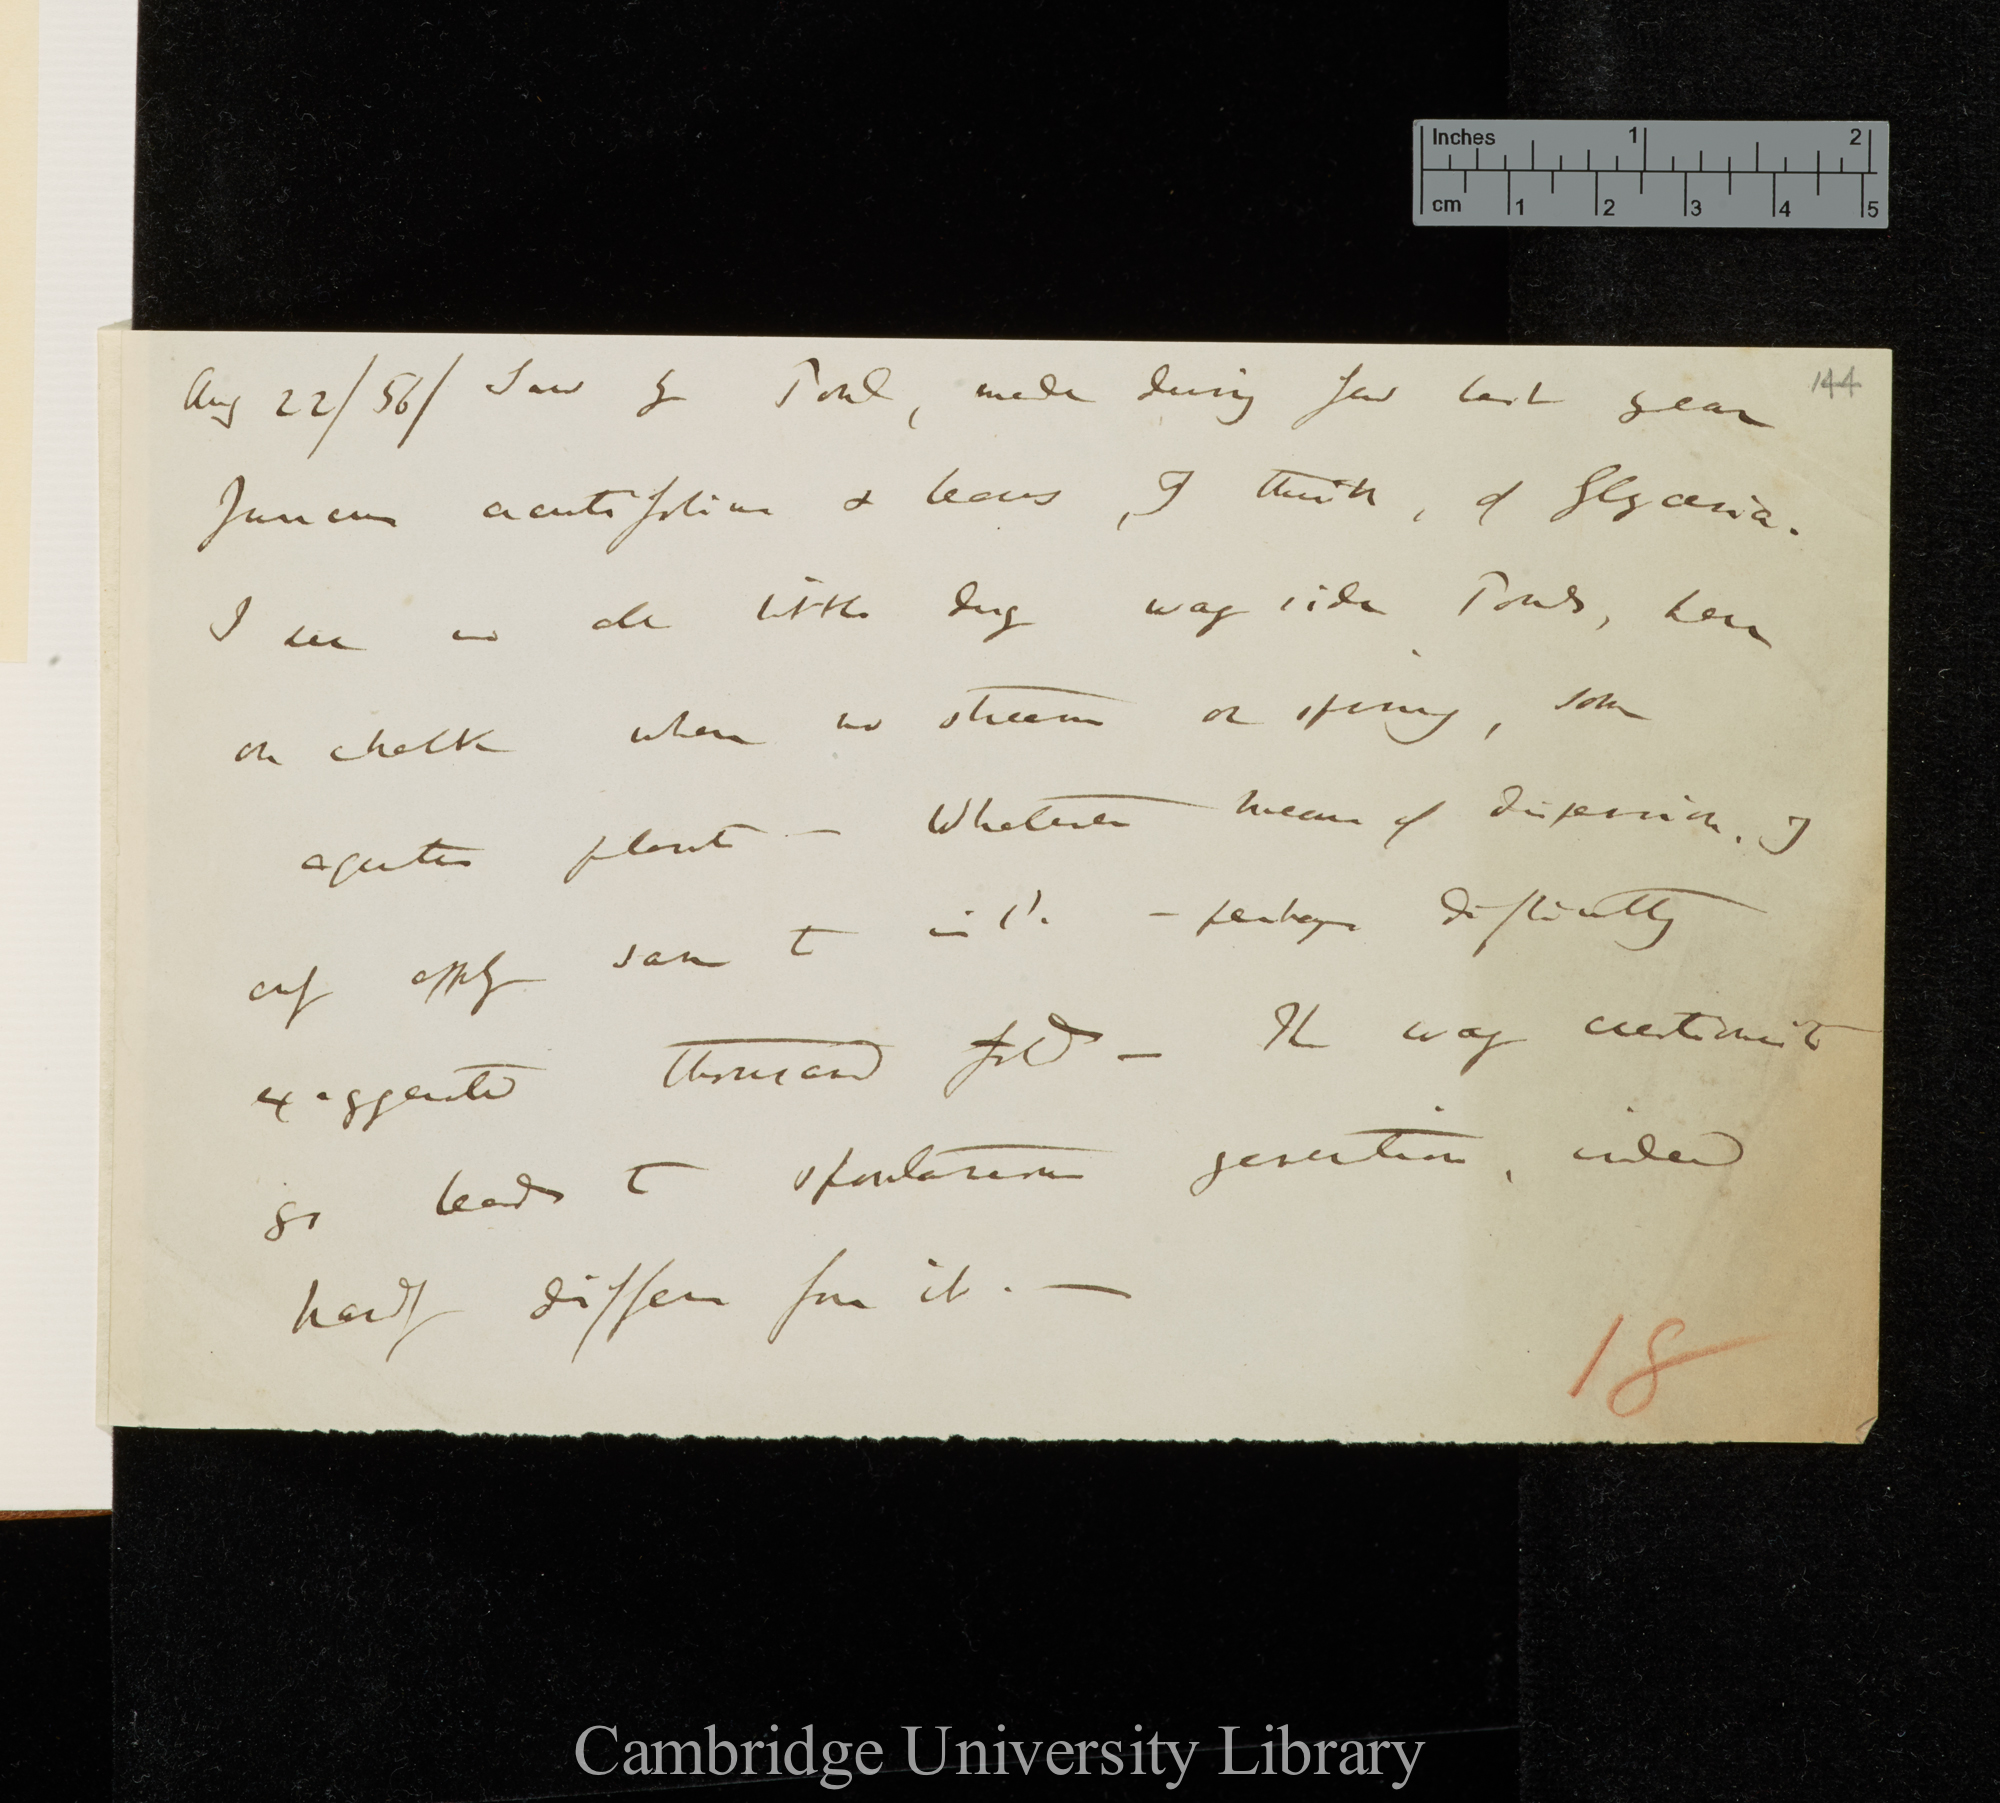 Inches 1 2
cm 1 2 3 4 5
144
Aug 22/56/ Saw by Pond, made during few last years
Juncus acutiflorus & leaves, I think, of Glyceria.
I see in all little dug way side Ponds, here
on chalk where no stream or spring, some
aquatic plant — Whatever means of dispersion, I
only apply same to isl<sup>ds</sup>. — perhaps difficulty
exaggerated thousand fold — The way creationist
go leads to spontaneous generation, indeed
hardly differs from it. —
18
Cambridge University Library